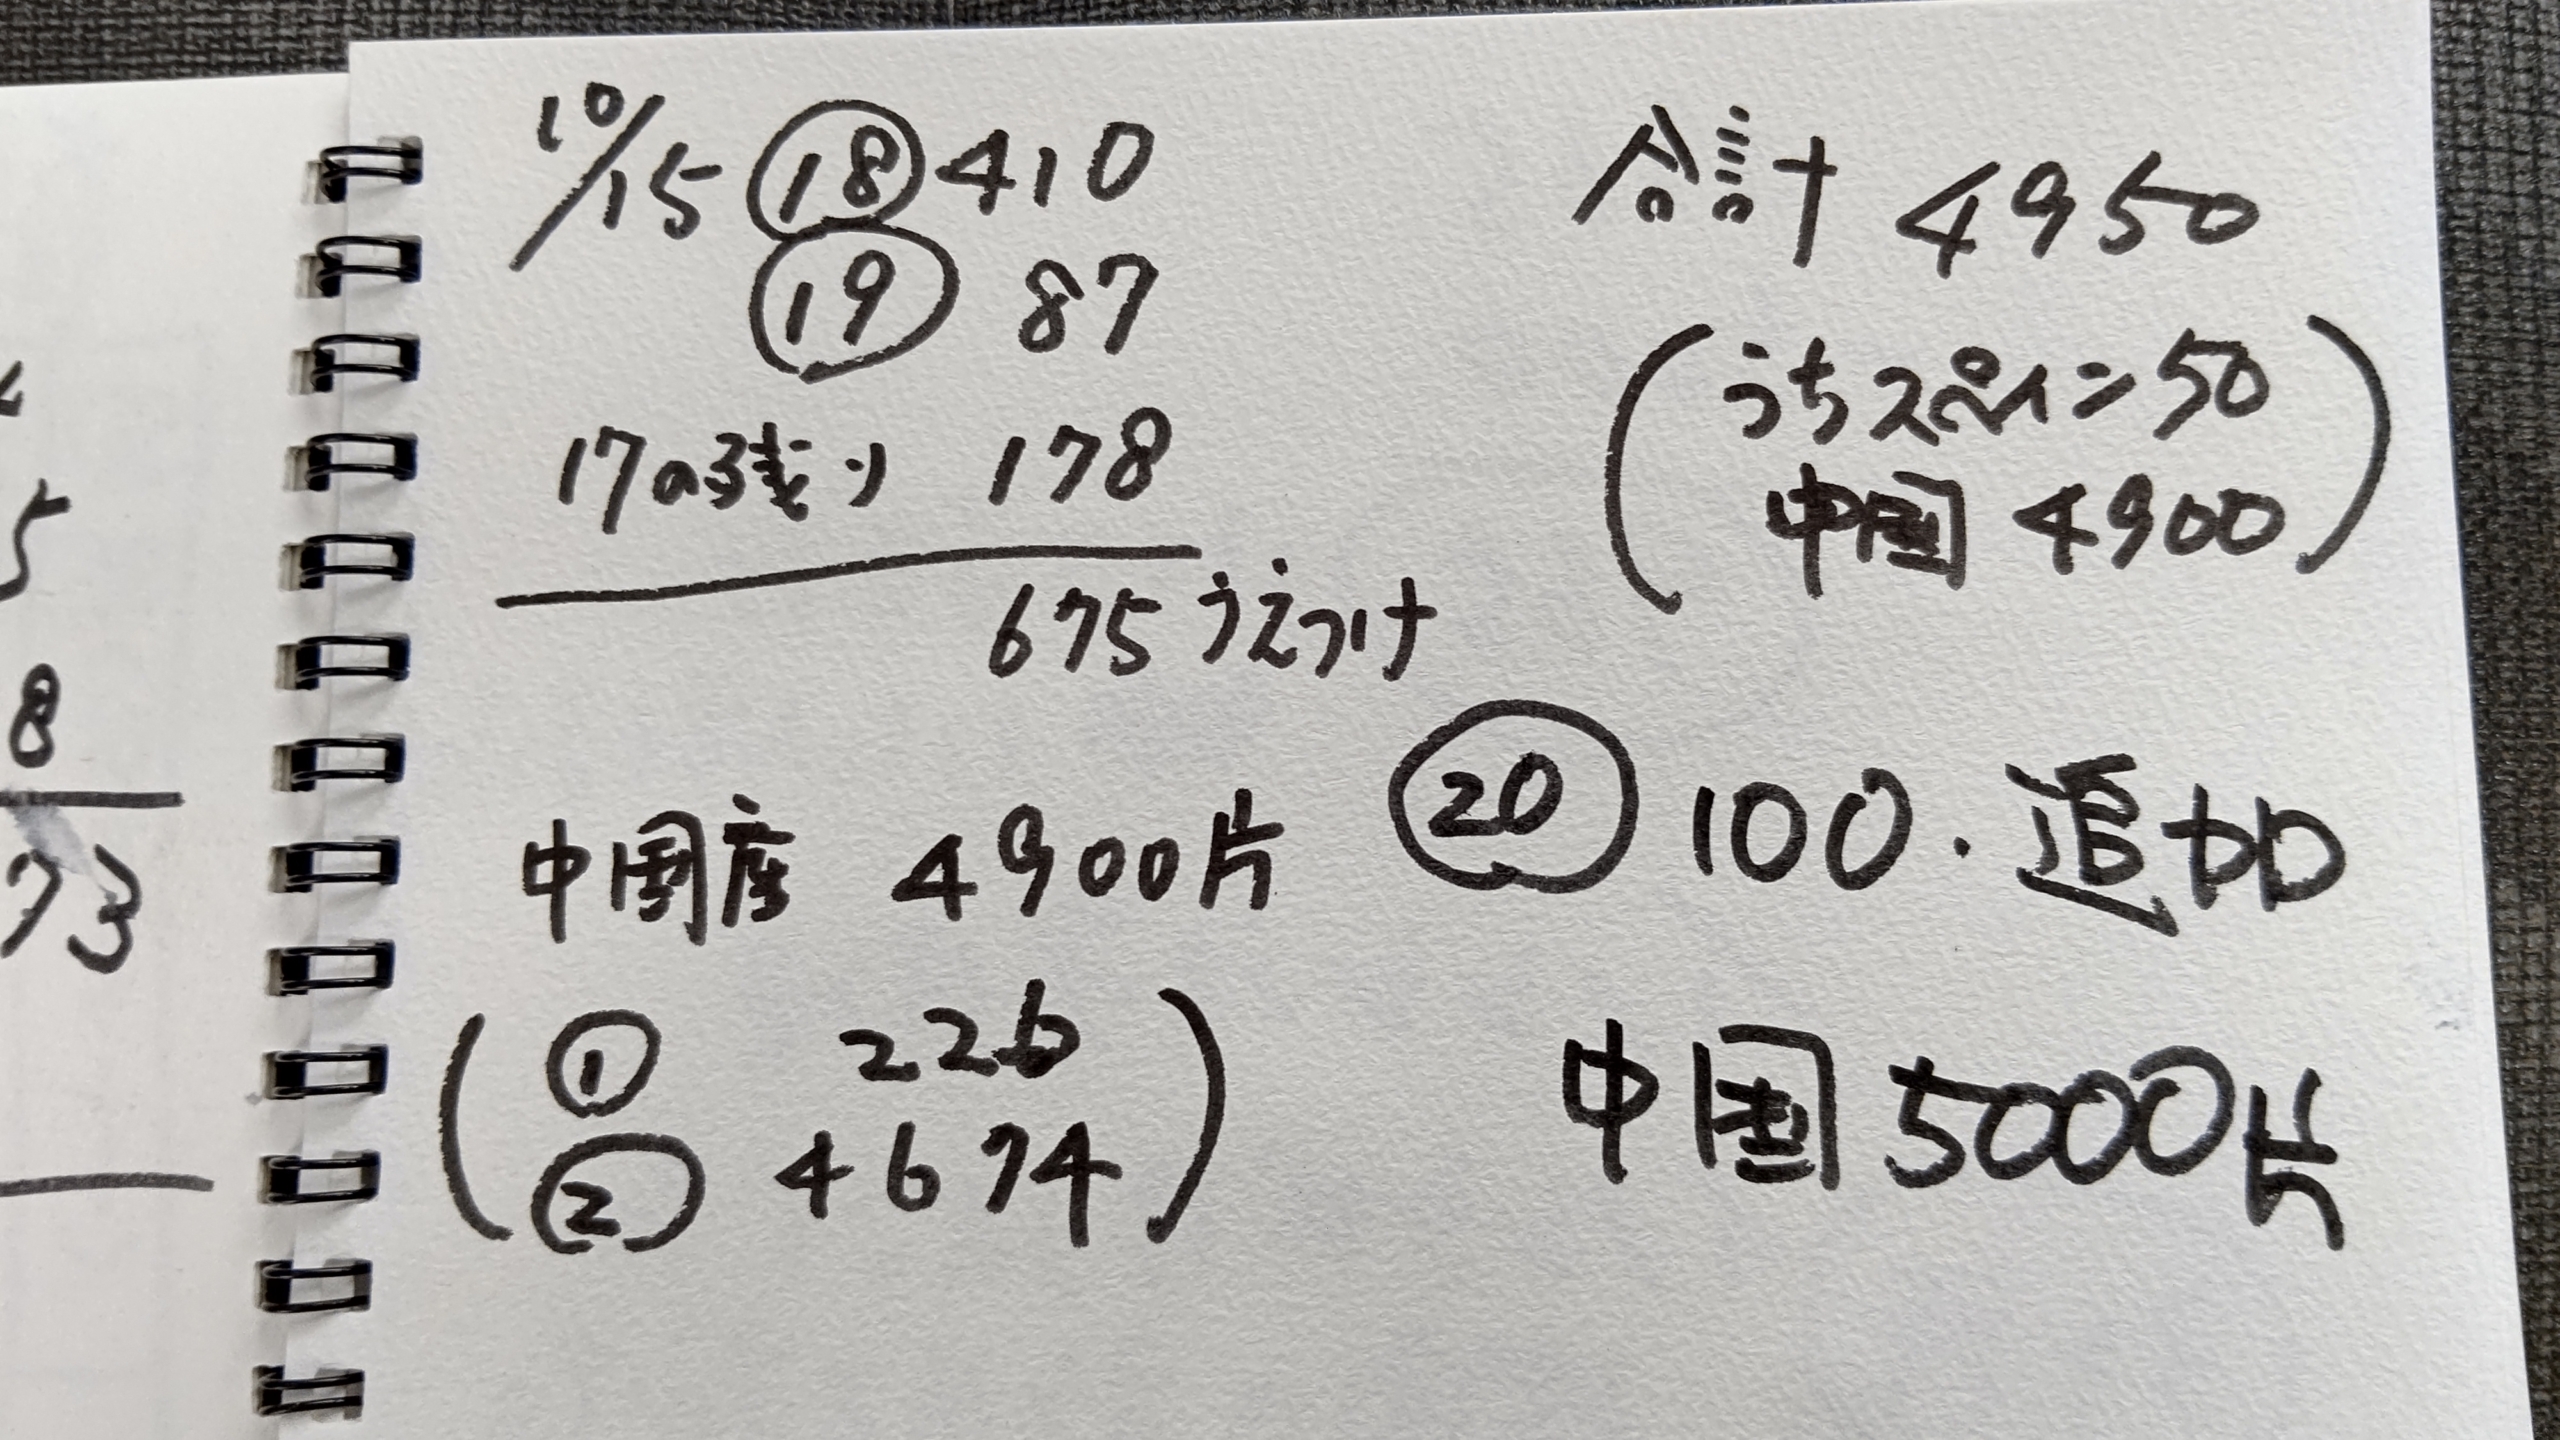 10/15 ⑱ 410
⑲ 87
17の残り 178
675 うえつけ
中国産 4900片
( ① 226
② 4674 )
合計 4950
( うちスペイン 50
中国 4900 )
⑳ 100. 追加
中国 5000片
5
8
73